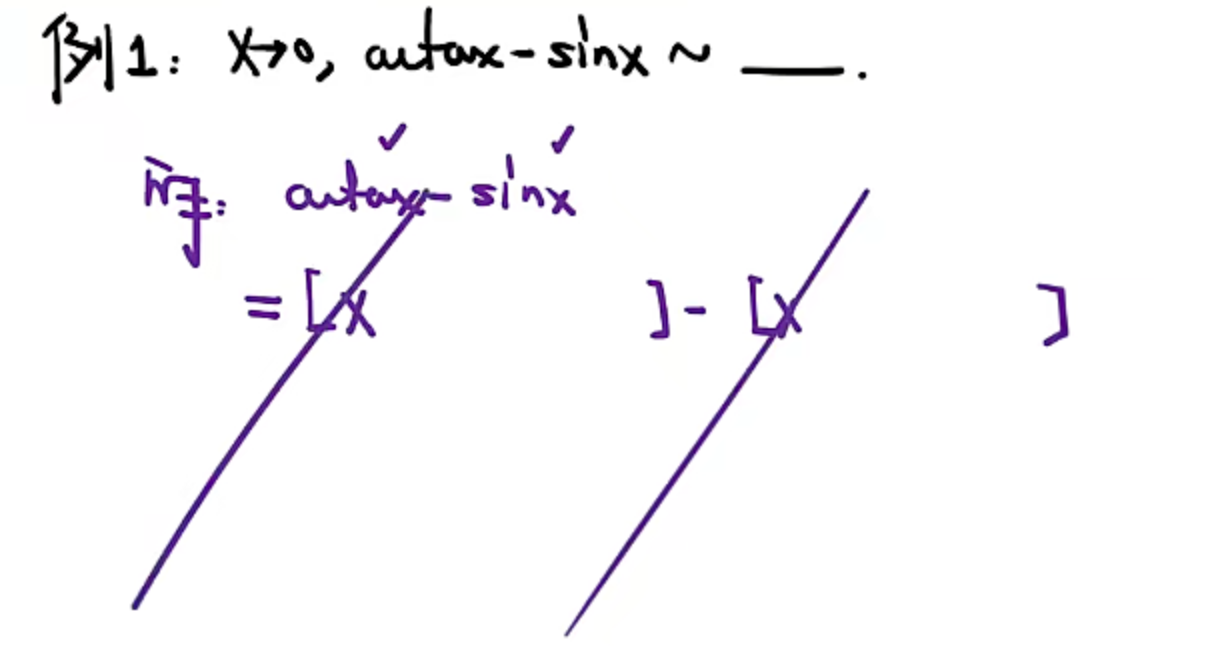 例1: x→0, arctanx - sinx ~ ___.
解: arctanx - sinx
= [x ] - [x ]